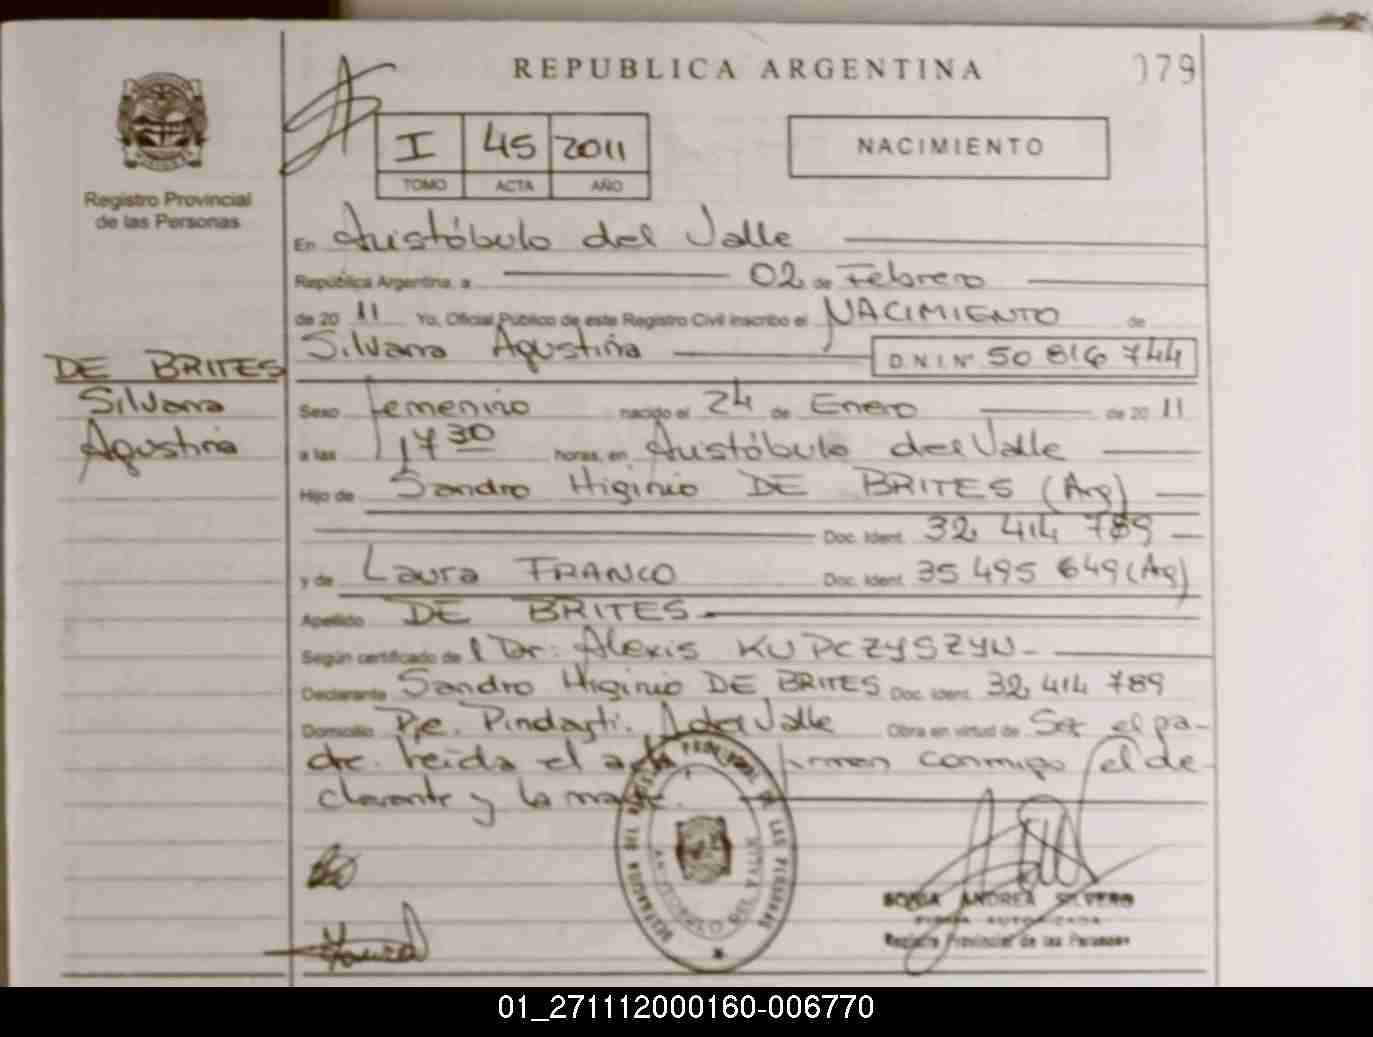 REPUBLICA ARGENTINA
079
Registro Provincial
de las Personas
I 45 2011
TOMO ACTA AÑO
NACIMIENTO
En Aristóbulo del Valle
República Argentina, a 02 de Febrero
de 2011 Yo, Oficial Público de este Registro Civil inscribo el NACIMIENTO de
Silvana Agustina D.N.I. Nº 50 816 744
DE BRITES
Silvana
Agustina
Sexo femenino nacido el 24 de Enero de 2011
a las 17 30 horas, en Aristóbulo del Valle
Hijo de Sandro Higinio DE BRITES (Arg)
Doc. Ident. 32 414 789
y de Laura FRANCO Doc. Ident. 35 495 649 (Arg)
Apellido DE BRITES
Según certificado de l Dr: Alexis KUPCZYSZYN
Declarante Sandro Higinio DE BRITES Doc. Ident. 32 414 789
Domicilio Pje. Pindayti. A del Valle Obra en virtud de Ser el pa-
dre. Leída el acta firman conmigo el de-
clarante y la madre.
ANDREA SILVERO
FIRMA AUTORIZADA
Registro Provincial de las Personas
01_271112000160-006770